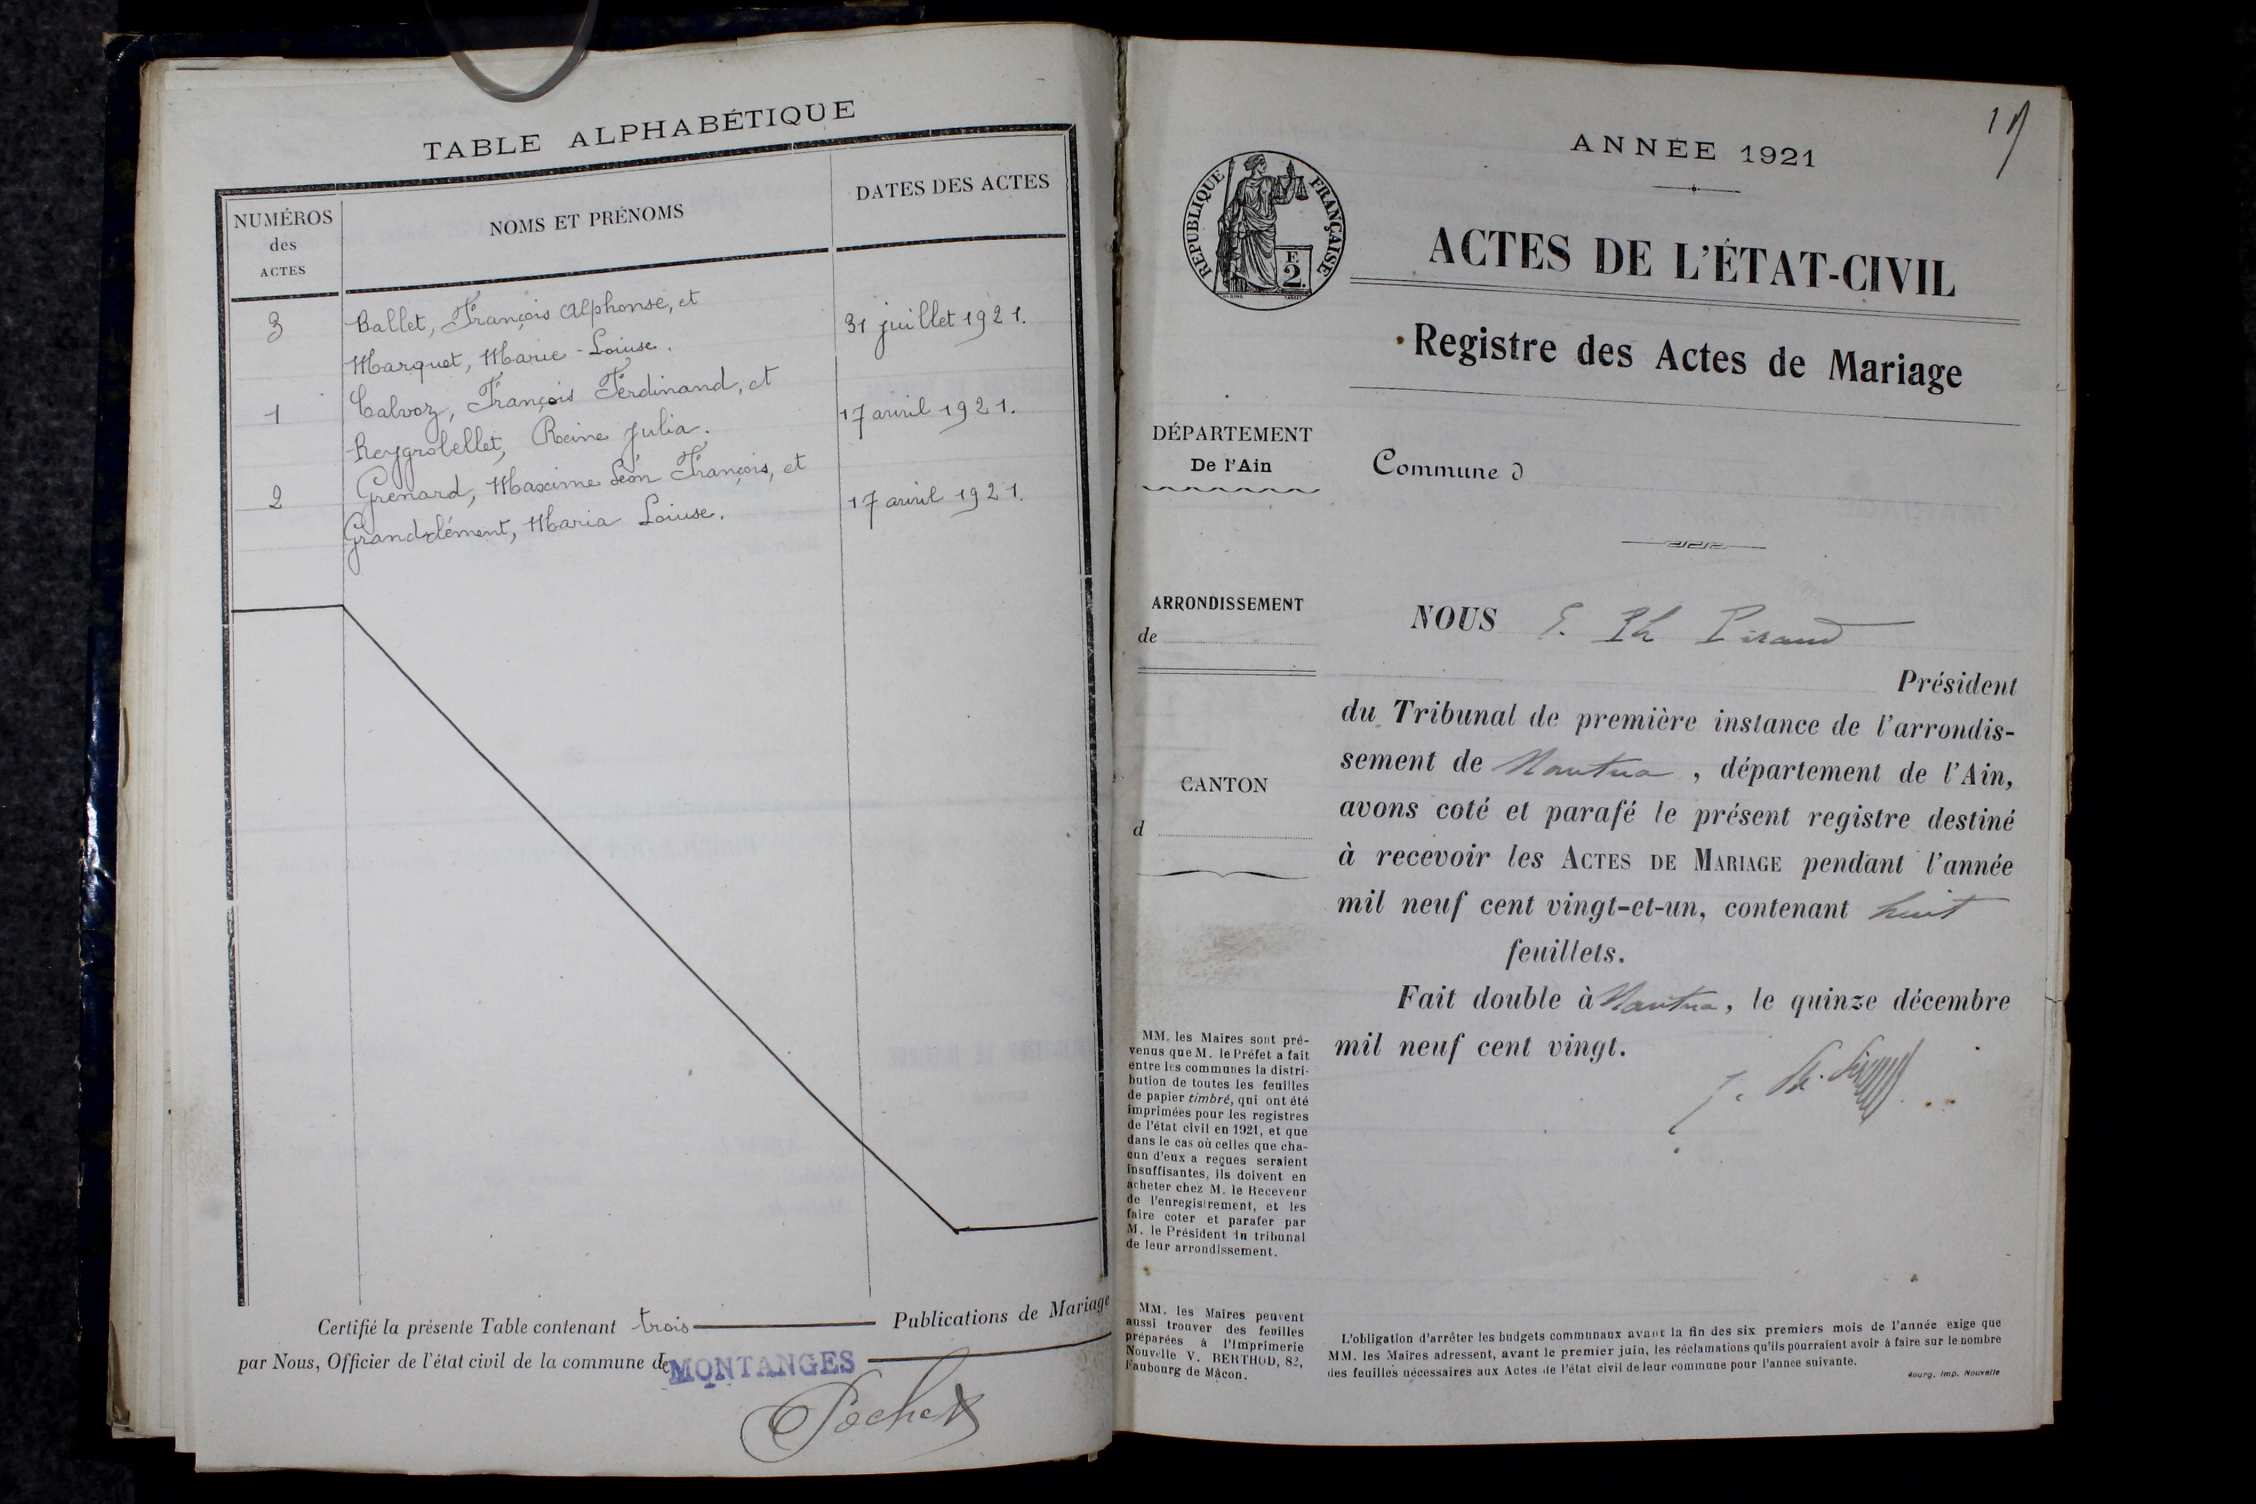 TABLE ALPHABÉTIQUE
NUMÉROS
des
ACTES
NOMS ET PRÉNOMS
DATES DES ACTES
3
Ballet, François Alphonse, et
Marquet, Marie-Louise.
31 juillet 1921.
1
Calvoz, François Ferdinand, et
Reygrobellet, Reine Julia.
17 avril 1921.
2
Grenard, Maxime Léon François, et
Grandclément, Maria Louise.
17 avril 1921.
Certifié la présente Table contenant trois Publications de Mariage
par Nous, Officier de l'état civil de la commune de MONTANGES
Pochet
ANNÉE 1921
RÉPUBLIQUE FRANÇAISE
E
2.
ACTES DE L'ÉTAT-CIVIL
Registre des Actes de Mariage
DÉPARTEMENT
De l'Ain
Commune d
ARRONDISSEMENT
de
CANTON
d
NOUS
Président
du Tribunal de première instance de l'arrondis-
sement de Nantua, département de l'Ain,
avons coté et parafé le présent registre destiné
à recevoir les ACTES DE MARIAGE pendant l'année
mil neuf cent vingt-et-un, contenant huit
feuillets.
Fait double à Nantua, le quinze décembre
mil neuf cent vingt.
MM. les Maires sont pré-
venus que M. le Préfet a fait
entre les communes la distri-
bution de toutes les feuilles
de papier timbré, qui ont été
imprimées pour les registres
de l'état civil en 1921, et que
dans le cas où celles que cha-
cun d'eux a reçues seraient
insuffisantes, ils doivent en
acheter chez M. le Receveur
de l'enregistrement, et les
faire coter et parafer par
M. le Président du tribunal
de leur arrondissement.
MM. les Maires peuvent
aussi trouver des feuilles
préparées à l'Imprimerie
Nouvelle V. BERTHOD, 82,
Faubourg de Mâcon.
L'obligation d'arrêter les budgets communaux avant la fin des six premiers mois de l'année exige que
MM. les Maires adressent, avant le premier juin, les réclamations qu'ils pourraient avoir à faire sur le nombre
des feuilles nécessaires aux Actes de l'état civil de leur commune pour l'année suivante.
Bourg, Imp. Nouvelle